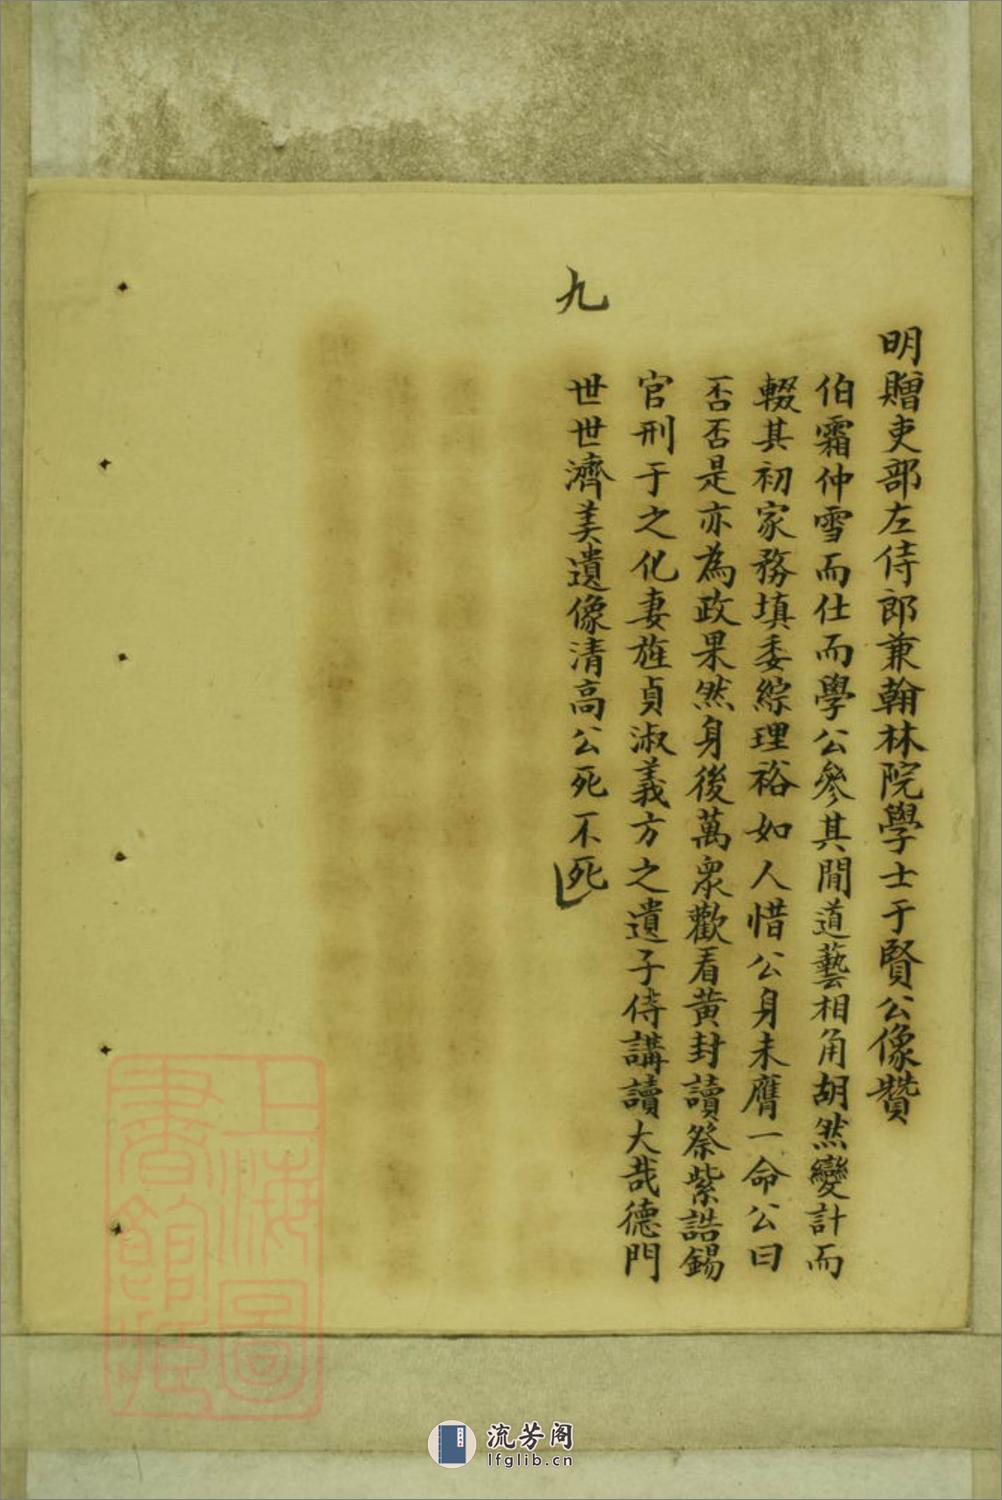 明贈吏部左侍郎兼翰林院學士于賢公像贊
伯霜仲雪而仕而學公參其間道藝相角胡然變計而
輟其初家務填委綜理裕如人惜公身未膺一命公曰
否否是亦為政果然身後萬眾歡看黃封讀祭紫誥錫
官刑于之化妻旌貞淑義方之遺子侍講讀大哉德門
世世濟美遺像清高公死不死
九
上海圖
書館藏
流芳阁
lfglib.cn